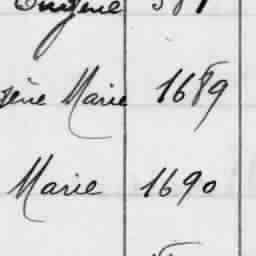 Eugène
gène Marie 1689
Marie 1690